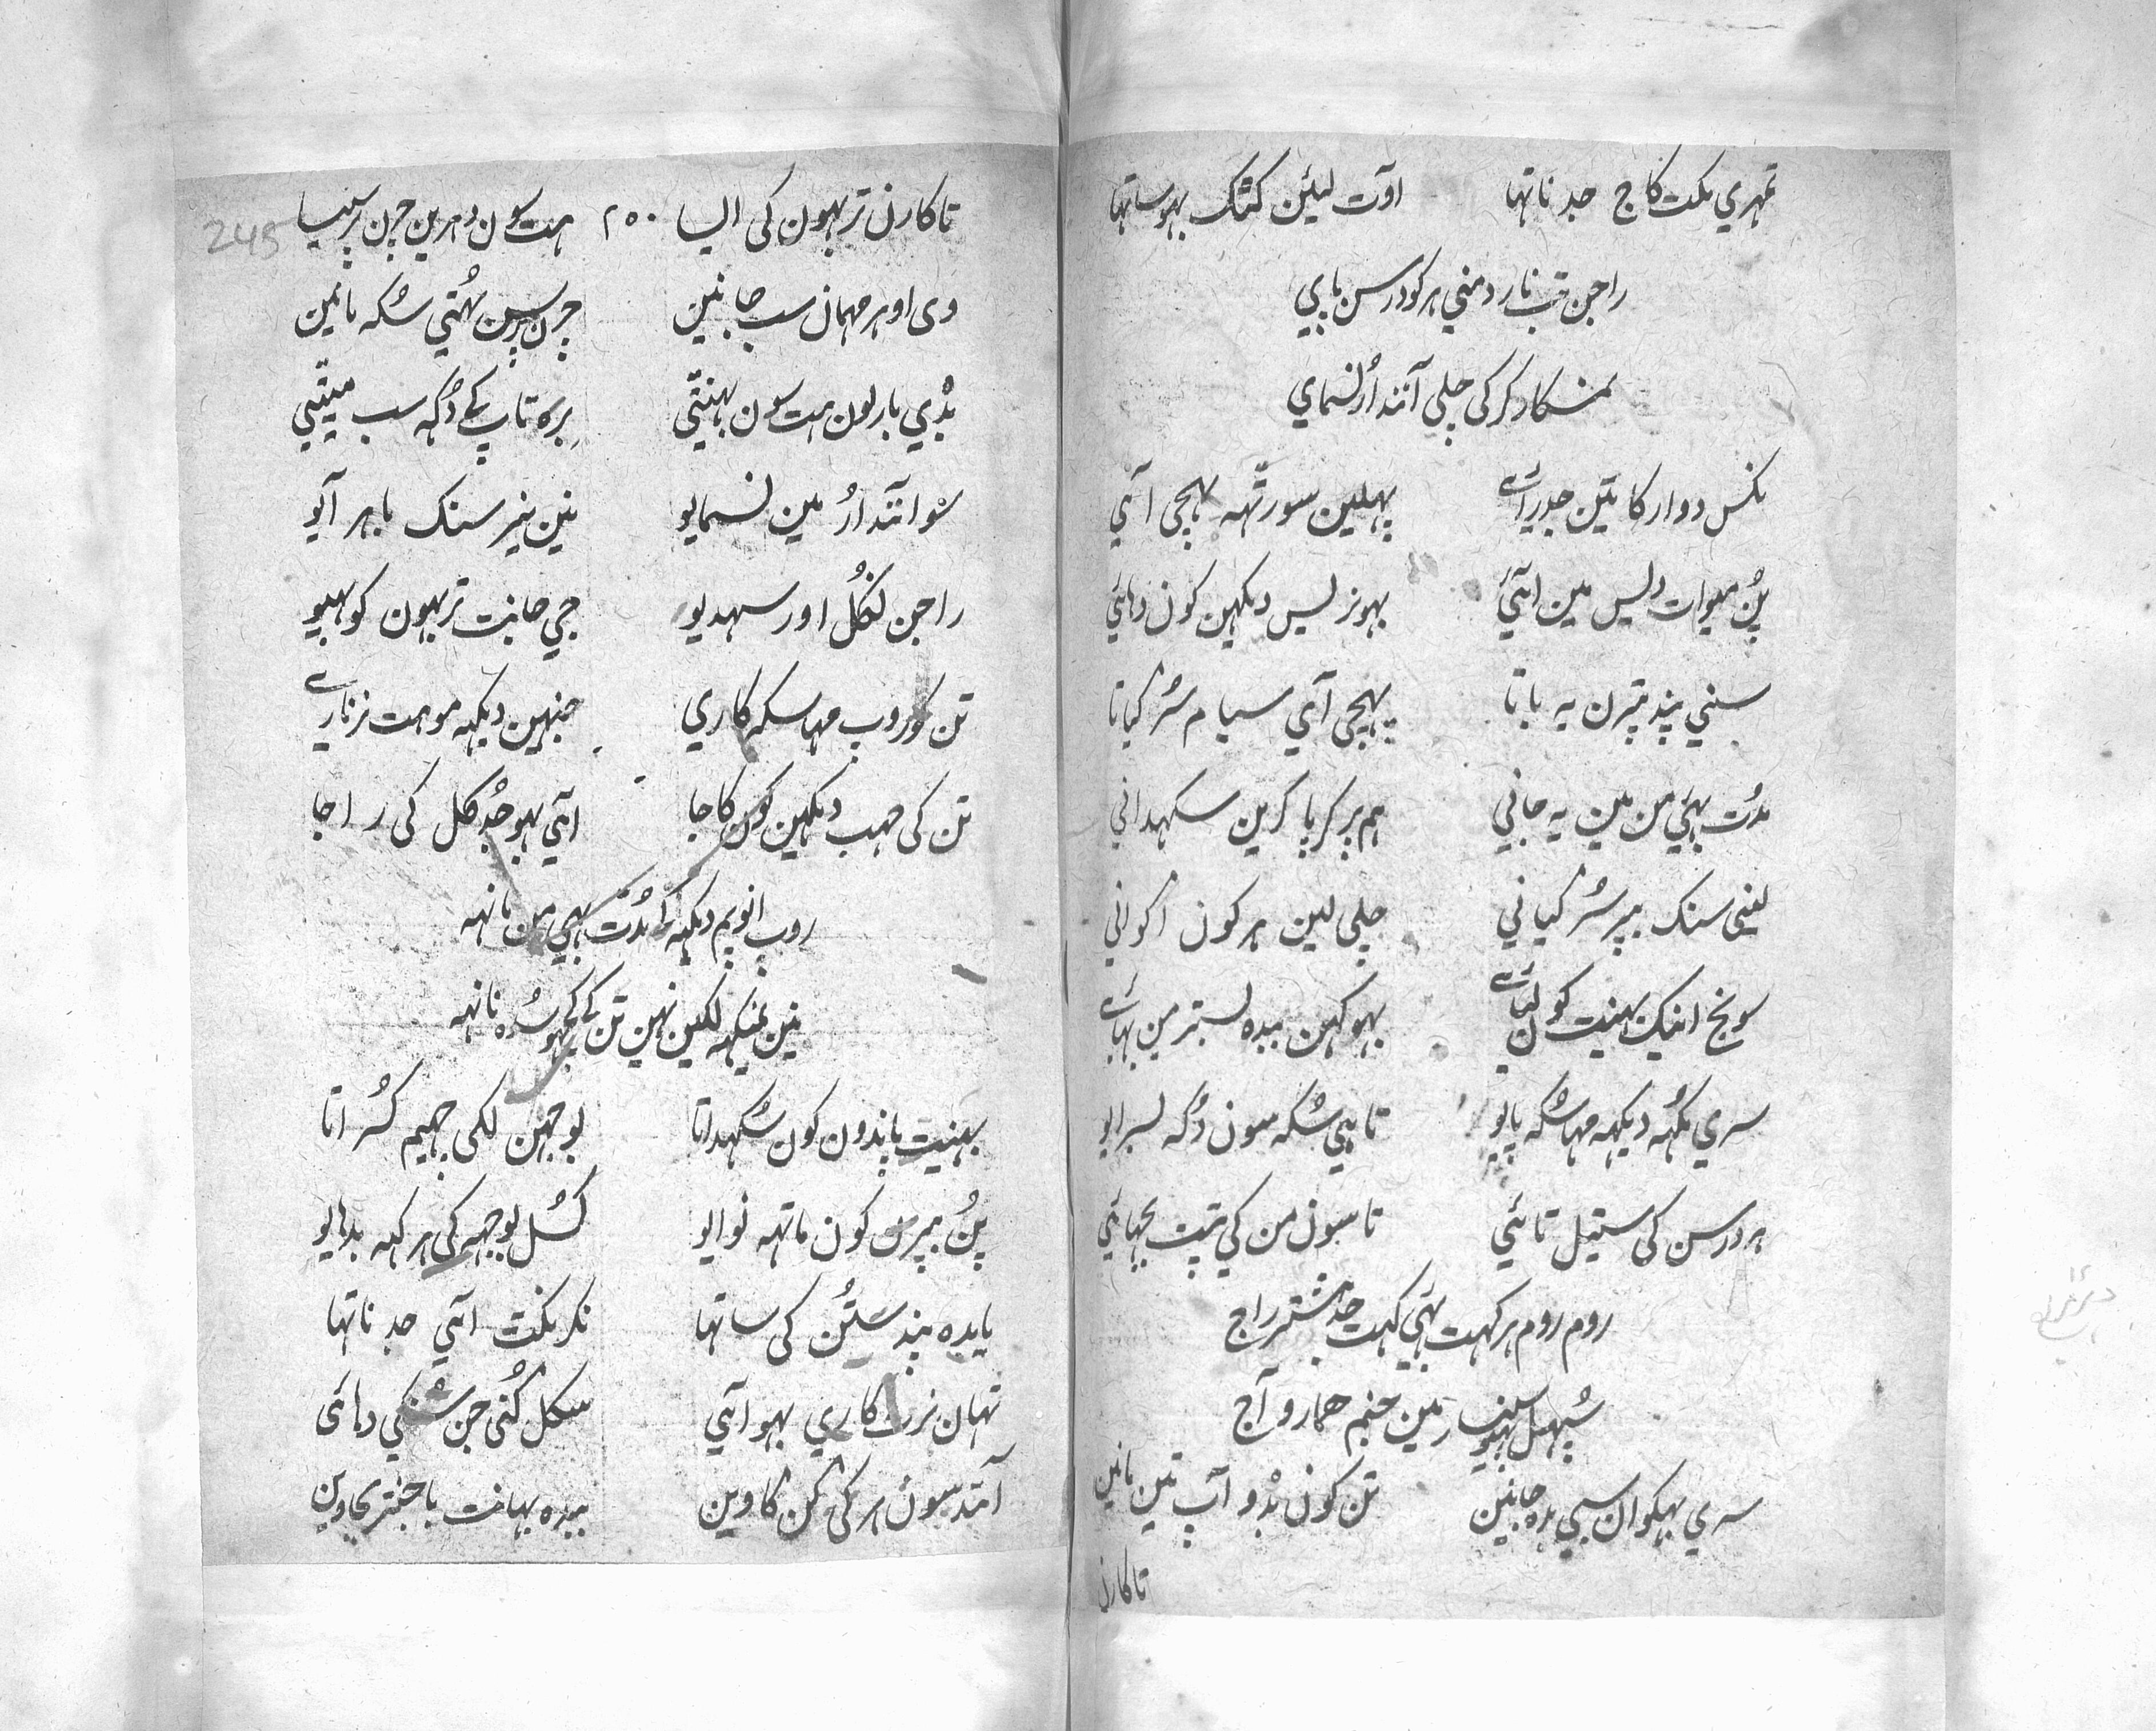 تمہري نکت کاج جد ناتہا اوت لیئن کٹک بہو ساتہا
راجن تب نارد مني ہر کو درسن پايي
نمسکار کر کی چلي آنند اُر نسماي
نکس دوارکا تین جدرائے پہلین سورتہہ پہچی آئي
پُن میوات دیس مین آئي بہو نر لیس دیکہن کون دہائي
سني پند پترن یہ باتا پہچی آئي سیام سُر گیاتا
مدُت بہئي من مین یہ جاني ہم پر کرپا کرین سکہداني
لیني سنک بپر سُر گیاني چلی لین ہر کون اکواني
سونج انیک بہینٹ کون لیائے بہو کہن بده بستر من بہائے
سري مکہہ دیکہہ مہا سُکہ پایو تاہي سُکہ سون دُکہ بسرایو
ہر درسن کی ستیل تائي تاسون من کي تپت بجہائي
روم روم ہر کہت بہئي کہت جدشتر راج
سُپہل بہیو سنسار مین جنم ہمارو آج
سري بہگوان سبي بده جانین تن کون بڈو آپ تین مانین
تاکارن
تاکارن تربہون کی ایسا ۲۵۰ ہت سون دہرین چرن پر سیسا
245
وی او ہر مہمان سب جانین چرن پرسن بُہتي سُکہ مانین
بڈي بار لون ہت سون بہینٹي برہ تاپ کے دُکہ سب میٹي
سو آنند اُر مین نسمایو نین نیر سنک باہر آیو
راجن نکُل اور سہدیو جي جانت تربہون کو بہیو
تن کو روپ مہا سکہ کاري جنہین دیکہہ موہت نر نارے
تن کی چہب دیکہن کون کاجا آئي بہو جدُ کل کی راجا
روپ انوپم دیکہہ کر مدُت بہي من مانہہ
نین نمیکہہ لکین نہین تن کے کچہو سُده نانہہ
بہینٹ پانڈون کون سُکہداتا بوجہن لکی چہیم کُسراتا
پُن بپرن کون ماتہہ نوایو کُسل بوجہہ کی ہر کہہ بدہایو
یا بده پند سُتُن کی ساتہا نکر نکٹ آئي جد ناتہا
تہان نرت کاري بہو آئي سکل گُني جن سُن کي دہائي
آنند سون ہر کی گن گاوین ببده بہانت باجنتر بجاوین